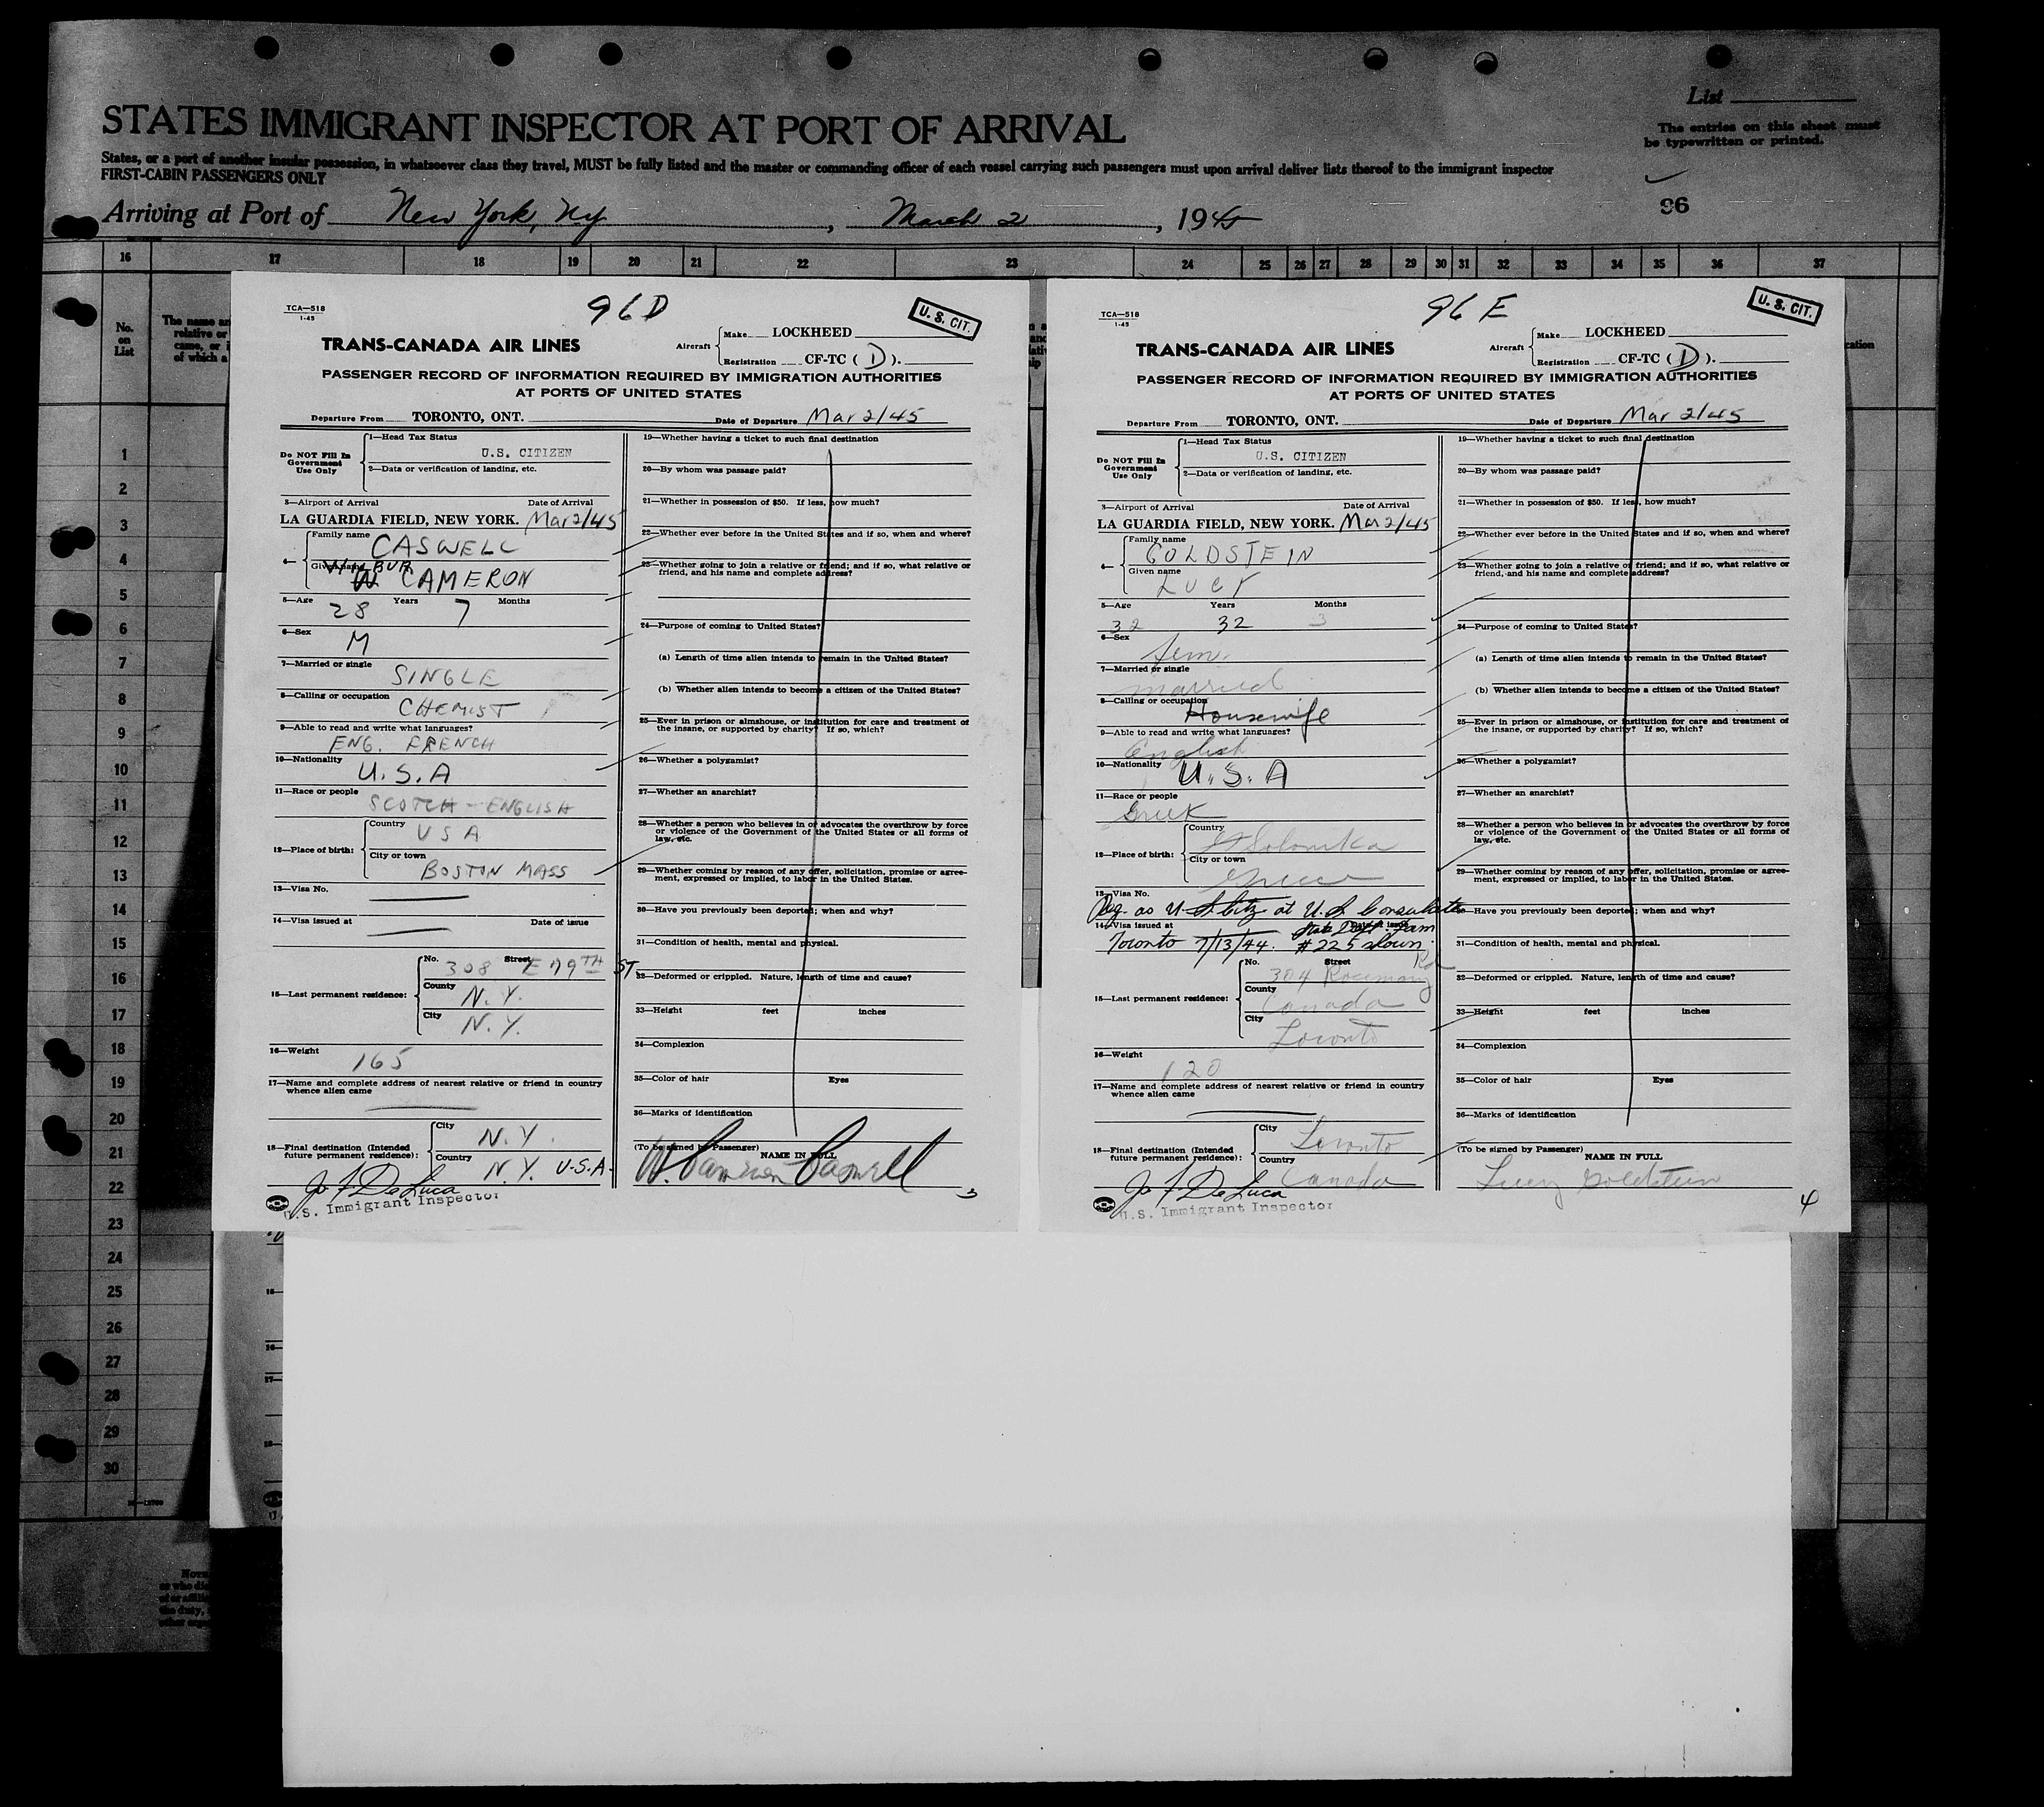 STATES IMMIGRANT INSPECTOR AT PORT OF ARRIVAL
List
The entries on this sheet must
be typewritten or printed.
States, or a port of another insular possession, in whatsoever class they travel, MUST be fully listed and the master or commanding officer of each vessel carrying such passengers must upon arrival deliver lists thereof to the immigrant inspector
FIRST-CABIN PASSENGERS ONLY
Arriving at Port of New York, NY, March 2, 1945
96
16 17 18 19 20 21 22 23 24 25 26 27 28 29 30 31 32 33 34 35 36 37
No.
on
List
The name an
relative or
came, or i
of which a
1
2
3
4
5
6
7
8
9
10
11
12
13
14
15
16
17
18
19
20
21
22
23
24
25
26
27
28
29
30
TCA—518
1-45
96 D
U. S. CIT.
TRANS-CANADA AIR LINES
Aircraft
Make LOCKHEED
Registration CF-TC ( D ).
PASSENGER RECORD OF INFORMATION REQUIRED BY IMMIGRATION AUTHORITIES
AT PORTS OF UNITED STATES
Departure From TORONTO, ONT. Date of Departure Mar 2/45
Do NOT Fill In
Government
Use Only
1—Head Tax Status
U.S. CITIZEN
2—Data or verification of landing, etc.
3—Airport of Arrival Date of Arrival
LA GUARDIA FIELD, NEW YORK. Mar 2/45
4—
Family name
CASWELL
Given name
W CAMERON
5—Age 28 Years 7 Months
6—Sex
M
7—Married or single
SINGLE
8—Calling or occupation
CHEMIST
9—Able to read and write what languages?
ENG. FRENCH
10—Nationality
U.S.A
11—Race or people
SCOTCH - ENGLISH
12—Place of birth:
Country
USA
City or town
BOSTON MASS
13—Visa No.
14—Visa issued at Date of issue
15—Last permanent residence:
No. 308 Street E 79TH ST
County
N.Y.
City
N.Y.
16—Weight
165
17—Name and complete address of nearest relative or friend in country
whence alien came
18—Final destination (Intended
future permanent residence):
City
N.Y.
Country
N.Y. U.S.A.
Jo F. DeLuca
U.S. Immigrant Inspector
19—Whether having a ticket to such final destination
20—By whom was passage paid?
21—Whether in possession of $50. If less, how much?
22—Whether ever before in the United States and if so, when and where?
23—Whether going to join a relative or friend; and if so, what relative or
friend, and his name and complete address?
24—Purpose of coming to United States?
(a) Length of time alien intends to remain in the United States?
(b) Whether alien intends to become a citizen of the United States?
25—Ever in prison or almshouse, or institution for care and treatment of
the insane, or supported by charity? If so, which?
26—Whether a polygamist?
27—Whether an anarchist?
28—Whether a person who believes in or advocates the overthrow by force
or violence of the Government of the United States or all forms of
law, etc.
29—Whether coming by reason of any offer, solicitation, promise or agree-
ment, expressed or implied, to labor in the United States.
30—Have you previously been deported; when and why?
31—Condition of health, mental and physical.
32—Deformed or crippled. Nature, length of time and cause?
33—Height feet inches
34—Complexion
35—Color of hair Eyes
36—Marks of identification
(To be signed by Passenger)
NAME IN FULL
W. Cameron Caswell
3
TCA—518
1-45
96 E
U. S. CIT.
TRANS-CANADA AIR LINES
Aircraft
Make LOCKHEED
Registration CF-TC ( D ).
PASSENGER RECORD OF INFORMATION REQUIRED BY IMMIGRATION AUTHORITIES
AT PORTS OF UNITED STATES
Departure From TORONTO, ONT. Date of Departure Mar 2/45
Do NOT Fill In
Government
Use Only
1—Head Tax Status
U.S. CITIZEN
2—Data or verification of landing, etc.
3—Airport of Arrival Date of Arrival
LA GUARDIA FIELD, NEW YORK. Mar 2/45
4—
Family name
GOLDSTEIN
Given name
LUCY
5—Age Years Months
32 32 3
6—Sex
fem.
7—Married or single
married
8—Calling or occupation
Housewife
9—Able to read and write what languages?
English
10—Nationality
U.S.A
11—Race or people
Greek
12—Place of birth:
Country
Solonika
City or town
Greece
13—Visa No.
Reg. as U.S. Citz at U.S. Consulate
14—Visa issued at Date of issue
Toronto 7/13/44. State Dept. Form
#225 shown.
15—Last permanent residence:
No. Street
304 Rosemary Rd
County
Canada
City
Toronto
16—Weight
120
17—Name and complete address of nearest relative or friend in country
whence alien came
18—Final destination (Intended
future permanent residence):
City
Toronto
Country
Canada
Jo F. DeLuca
U.S. Immigrant Inspector
19—Whether having a ticket to such final destination
20—By whom was passage paid?
21—Whether in possession of $50. If less, how much?
22—Whether ever before in the United States and if so, when and where?
23—Whether going to join a relative or friend; and if so, what relative or
friend, and his name and complete address?
24—Purpose of coming to United States?
(a) Length of time alien intends to remain in the United States?
(b) Whether alien intends to become a citizen of the United States?
25—Ever in prison or almshouse, or institution for care and treatment of
the insane, or supported by charity? If so, which?
26—Whether a polygamist?
27—Whether an anarchist?
28—Whether a person who believes in or advocates the overthrow by force
or violence of the Government of the United States or all forms of
law, etc.
29—Whether coming by reason of any offer, solicitation, promise or agree-
ment, expressed or implied, to labor in the United States.
30—Have you previously been deported; when and why?
31—Condition of health, mental and physical.
32—Deformed or crippled. Nature, length of time and cause?
33—Height feet inches
34—Complexion
35—Color of hair Eyes
36—Marks of identification
(To be signed by Passenger)
NAME IN FULL
Lucy Goldstein
4